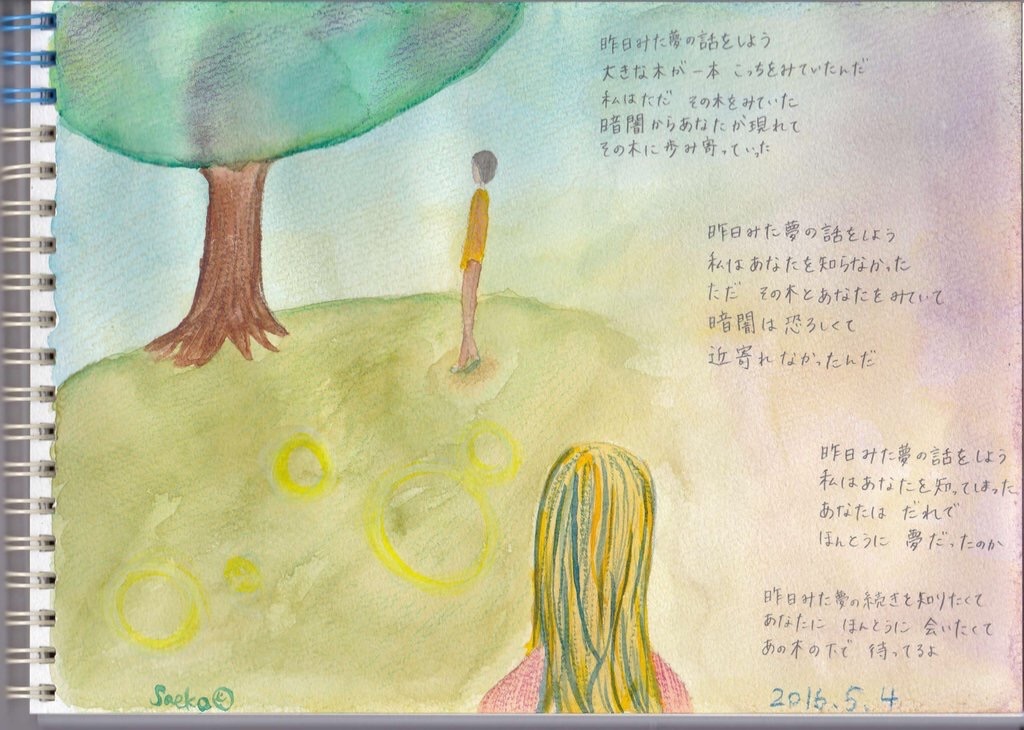 昨日みた夢の話をしよう
大きな木が一本 こっちをみていたんだ
私はただ その木をみていた
暗闇からあなたが現れて
その木に歩み寄っていった
昨日みた夢の話をしよう
私はあなたを知らなかった
ただ その木とあなたをみていて
暗闇は恐ろしくて
近寄れなかったんだ
昨日みた夢の話をしよう
私はあなたを知ってしまった
あなたは だれで
ほんとうに 夢だったのか
昨日みた夢の続きを知りたくて
あなたに ほんとうに 会いたくて
あの木の下で 待ってるよ
Saeko
2016.5.4